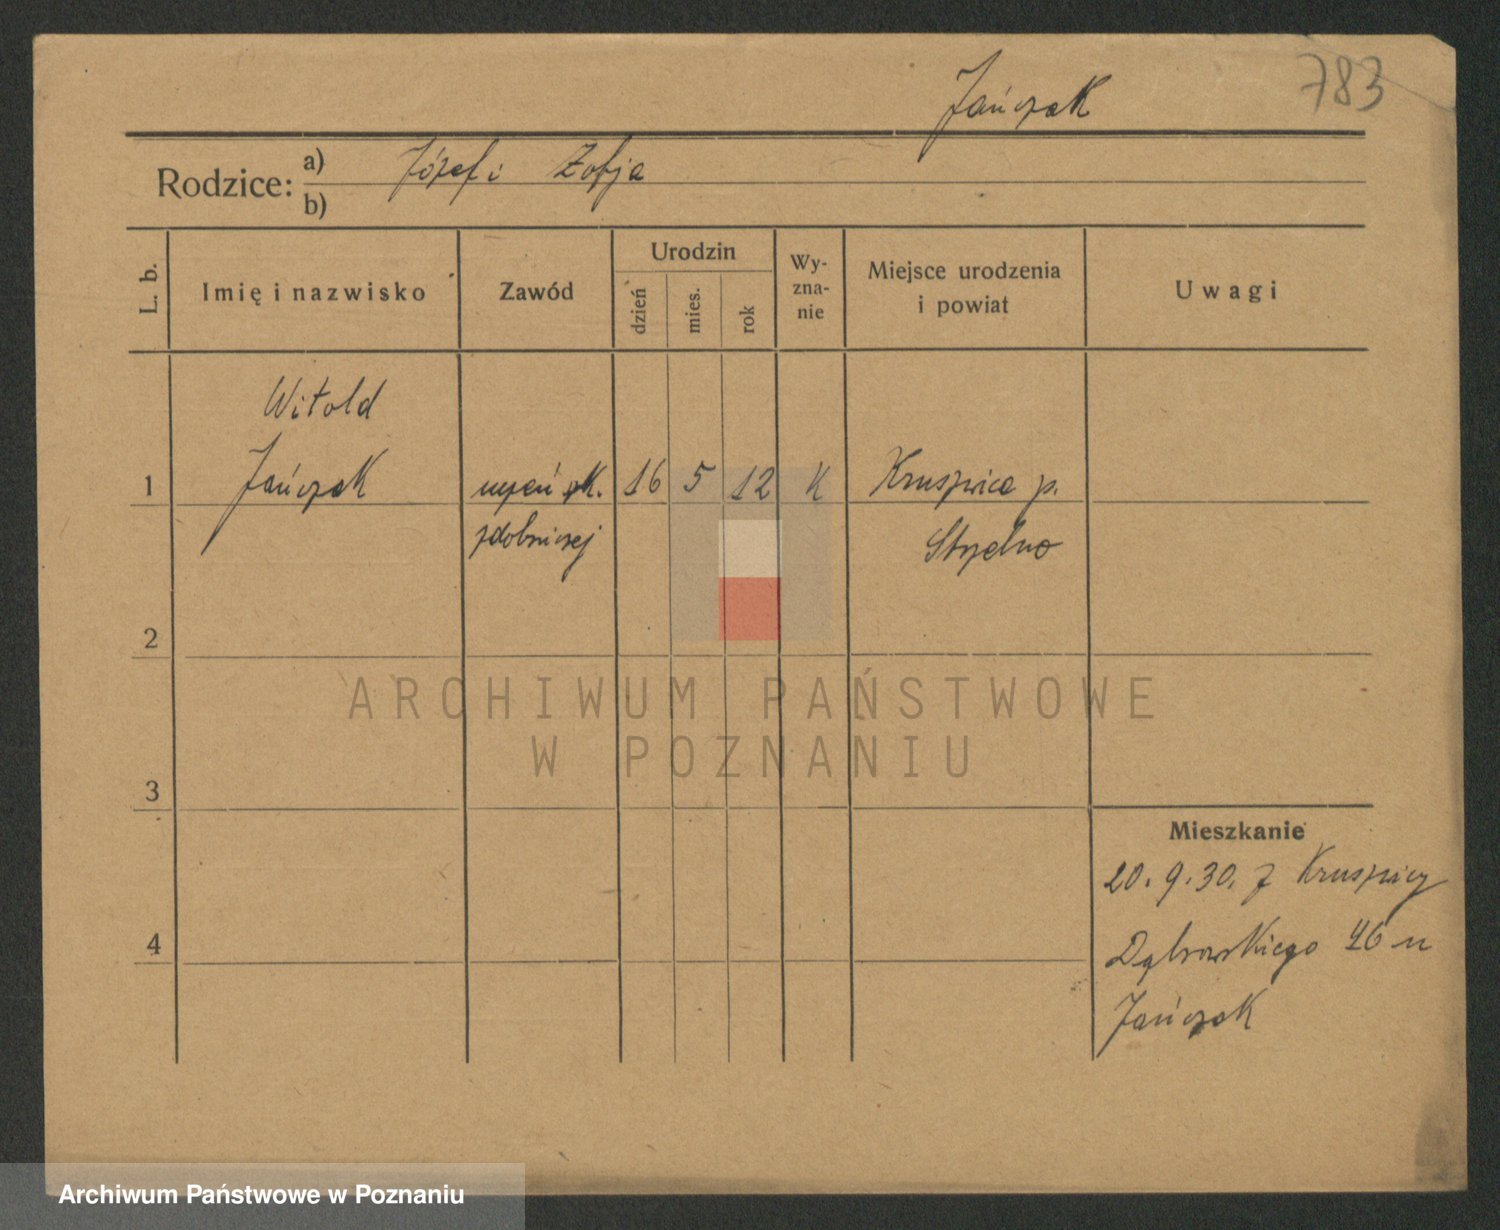 783
Jańczak
Rodzice: a) Józef i Zofja
b)
L. b.
Imię i nazwisko
Zawód
Urodzin
dzień
mies.
rok
Wy-
zna-
nie
Miejsce urodzenia
i powiat
Uwagi
Witold
1 Jańczak uczeń szk. 16 5 12 K Kruszwica p.
zdobniczej Strzelno
2
3
4
Mieszkanie
20.9.30. z Kruszwicy
Dąbrowskiego 46 u
Jańczak
ARCHIWUM PAŃSTWOWE
W POZNANIU
Archiwum Państwowe w Poznaniu